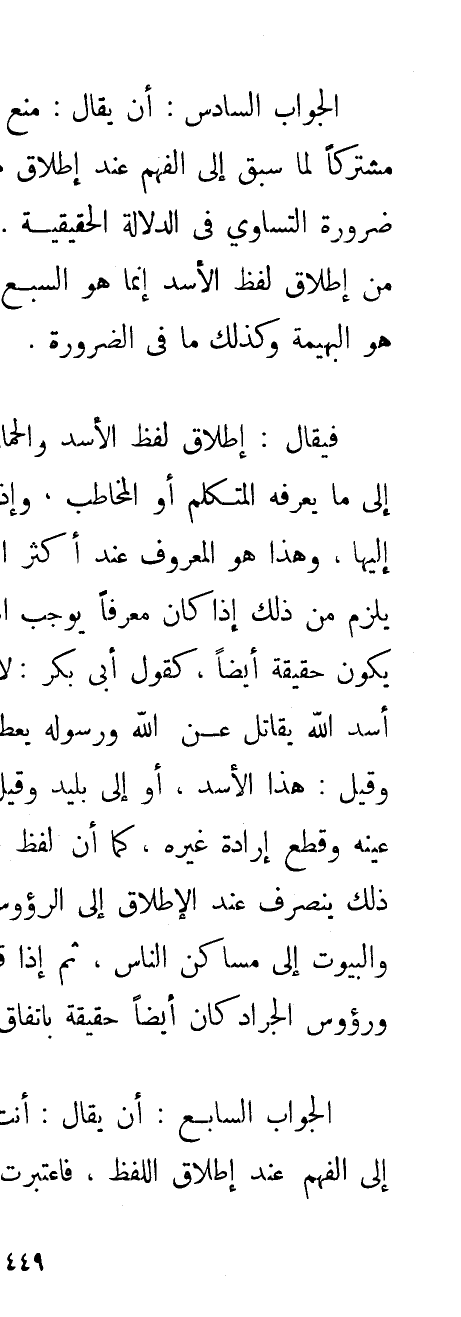 الجواب السادس : أن يقال : منع
مشتركاً لما سبق إلى الفهم عند إطلاق
ضرورة التساوي فى الدلالة الحقيقية .
من إطلاق لفظ الأسد إنما هو السبع
هو البهيمة وكذلك ما فى الضرورة .
فيقال : إطلاق لفظ الأسد والحما
إلى ما يعرفه المتكلم أو المخاطب ، وإذ
إليها ، وهذا هو المعروف عند أكثر ا
يلزم من ذلك إذا كان معرفاً يوجب ا
يكون حقيقة أيضاً ، كقول أبى بكر : لا
أسد الله يقاتل عن الله ورسوله يعط
وقيل : هذا الأسد ، أو إلى بليد وقيل
عينه وقطع إرادة غيره ، كما أن لفظ
ذلك ينصرف عند الإطلاق إلى الرؤوس
والبيوت إلى مساكن الناس ، ثم إذا ق
ورؤوس الجراد كان أيضاً حقيقة باتفاق
الجواب السابع : أن يقال : أنت
إلى الفهم عند إطلاق اللفظ ، فاعتبرت
٤٤٩